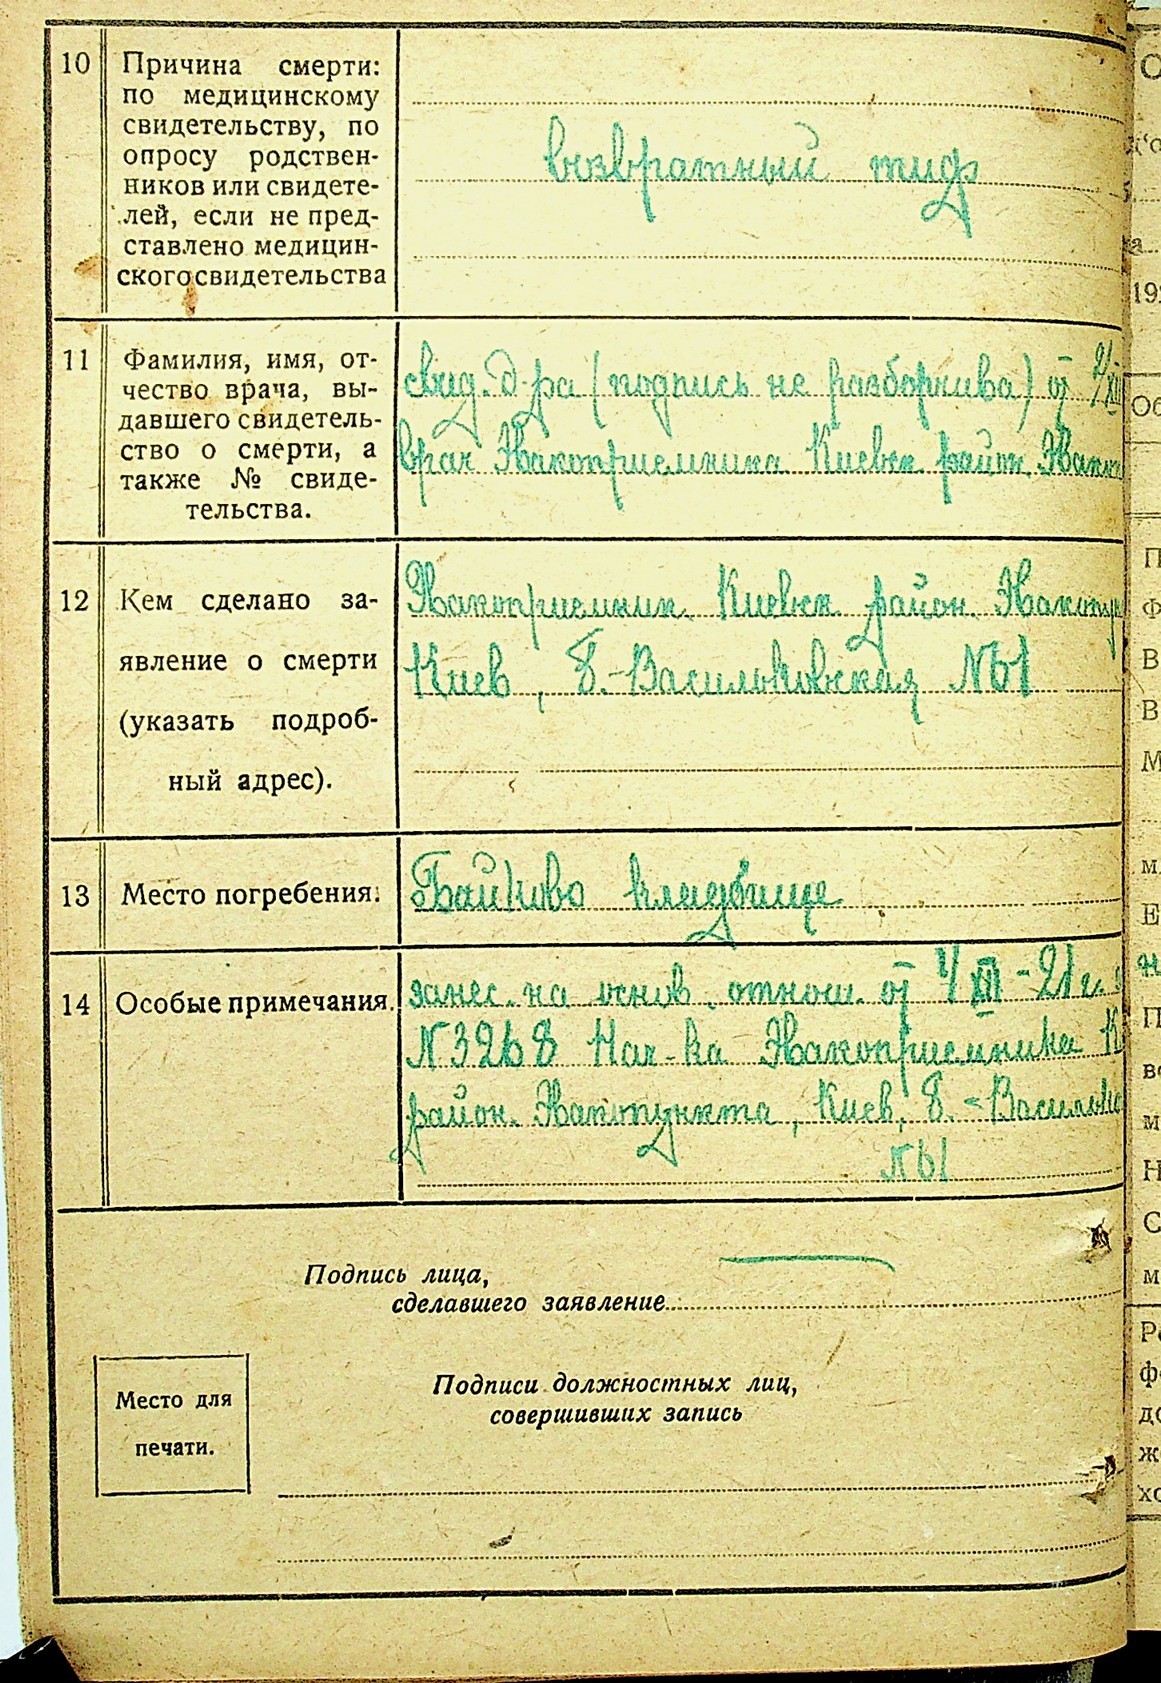 10 Причина смерти:
по медицинскому
свидетельству, по
опросу родствен-
ников или свидете-
лей, если не пред-
ставлено медицин-
ского свидетельства
возвратный тиф
11 Фамилия, имя, от-
чество врача, вы-
давшего свидетель-
ство о смерти, а
также № свиде-
тельства.
свид. д-ра (подпись не разборчива) от 2/XII
врач Эвакоприемника Киевск район. Эвакп
12 Кем сделано за-
явление о смерти
(указать подроб-
ный адрес).
Эвакоприемник Киевск район. Эвакопу
Киев, Б.-Васильковская №1
13 Место погребения.
Байково кладбище
14 Особые примечания.
занес. на основ. отнош. от 4/XII-21 г.
№3268 Нач-ка Эвакоприемника К
район. Эвакпункта, Киев, Б.-Василько
№1
Подпись лица,
сделавшего заявление
Место для
печати.
Подписи должностных лиц,
совершивших запись